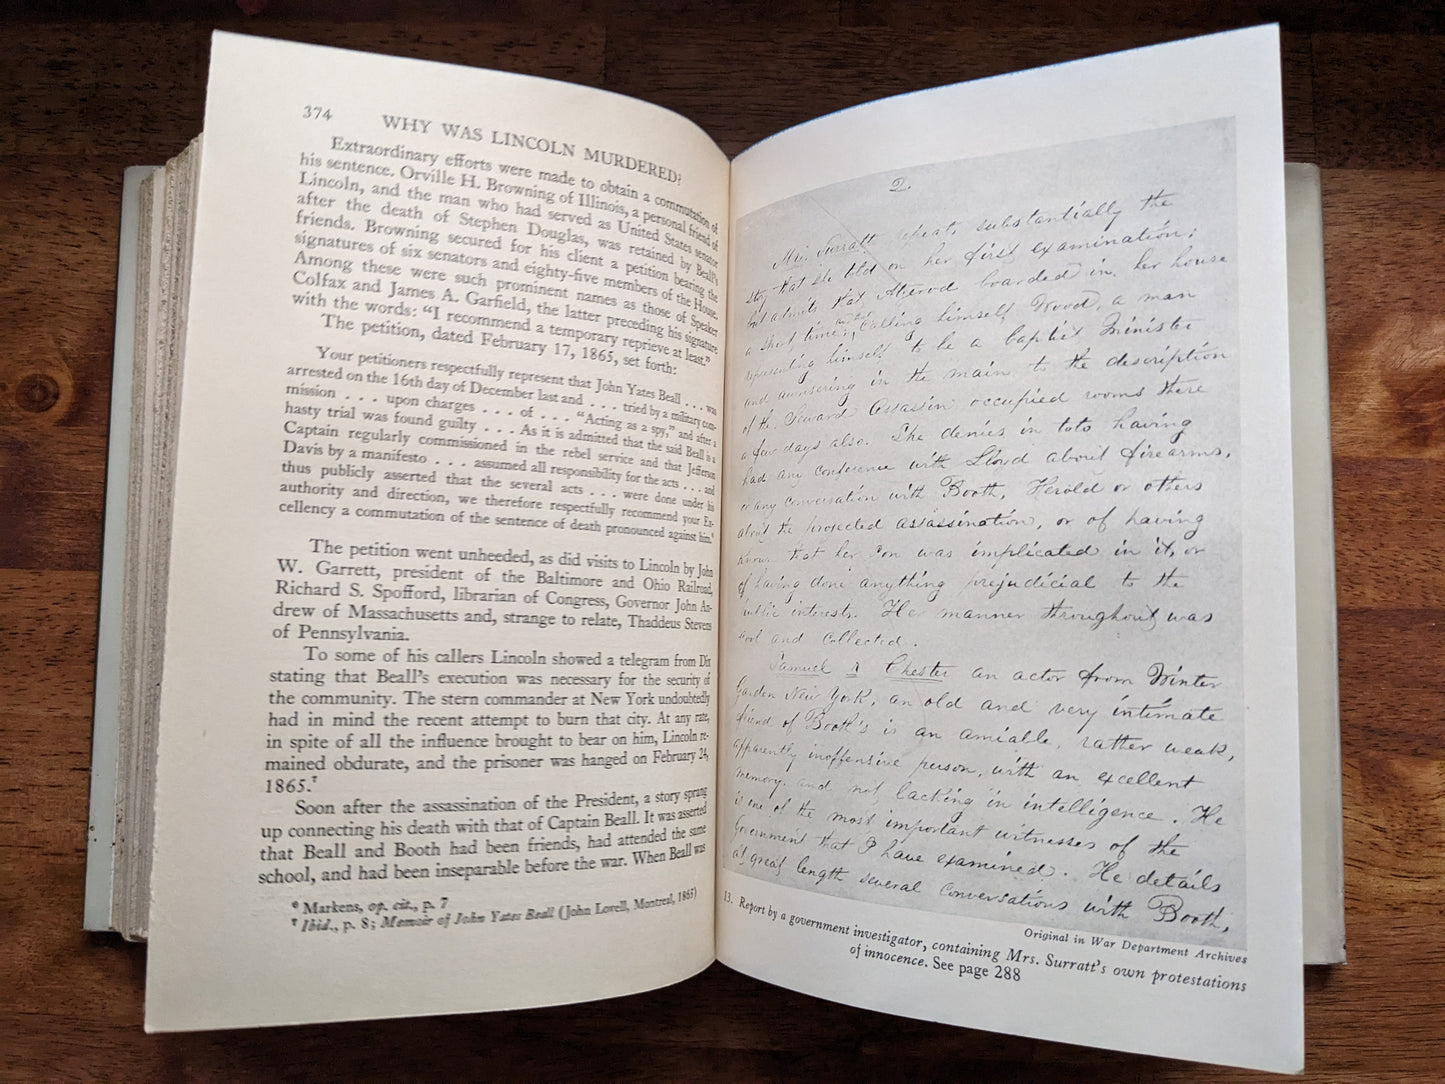 374
WHY WAS LINCOLN MURDERED?
Extraordinary efforts were made to obtain a commutation of
his sentence. Orville H. Browning of Illinois, a personal friend of
Lincoln, and the man who had served as United States senator
after the death of Stephen Douglas, was retained by Beall's
friends. Browning secured for his client a petition bearing the
signatures of six senators and eighty-five members of the House.
Among these were such prominent names as those of Speaker
Colfax and James A. Garfield, the latter preceding his signature
with the words: "I recommend a temporary reprieve at least."
The petition, dated February 17, 1865, set forth:
Your petitioners respectfully represent that John Yates Beall . . . was
arrested on the 16th day of December last and . . . tried by a military com-
mission . . . upon charges . . . of . . . "Acting as a spy," and after a
hasty trial was found guilty . . . As it is admitted that the said Beall is a
Captain regularly commissioned in the rebel service and that Jefferson
Davis by a manifesto . . . assumed all responsibility for the acts . . . and
thus publicly asserted that the several acts . . . were done under his
authority and direction, we therefore respectfully recommend your Ex-
cellency a commutation of the sentence of death pronounced against him.⁶
The petition went unheeded, as did visits to Lincoln by John
W. Garrett, president of the Baltimore and Ohio Railroad,
Richard S. Spofford, librarian of Congress, Governor John An-
drew of Massachusetts and, strange to relate, Thaddeus Stevens
of Pennsylvania.
To some of his callers Lincoln showed a telegram from Dix
stating that Beall's execution was necessary for the security of
the community. The stern commander at New York undoubtedly
had in mind the recent attempt to burn that city. At any rate,
in spite of all the influence brought to bear on him, Lincoln re-
mained obdurate, and the prisoner was hanged on February 24,
1865.⁷
Soon after the assassination of the President, a story sprang
up connecting his death with that of Captain Beall. It was asserted
that Beall and Booth had been friends, had attended the same
school, and had been inseparable before the war. When Beall was
⁶ Markens, op. cit., p. 7
⁷ Ibid., p. 8; Memoir of John Yates Beall (John Lovell, Montreal, 1865)
2.
Mrs. Surratt repeat, substantially the
story that she told on her first examination;
but admits that Atzerod boarded in her house
a short time; and calling himself Wood, a man
representing himself to be a baptist Minister
and answering in the main to the description
of the Seward Assassin occupied rooms there
a few days also. She denies in toto having
had any conference with Lloyd about firearms,
or any conversation with Booth, Herold or others
about the projected assassination, or of having
known that her son was implicated in it, or
of having done anything prejudicial to the
public interests. Her manner throughout was
cool and collected.
Samuel Chester an actor from Winter
Garden New York, an old and very intimate
friend of Booth's is an amiable, rather weak,
apparently inoffensive person, with an excellent
memory, and not lacking in intelligence. He
is one of the most important witnesses of the
Government that I have examined. He details
at great length several conversations with Booth,
Original in War Department Archives
13. Report by a government investigator, containing Mrs. Surratt's own protestations
of innocence. See page 288